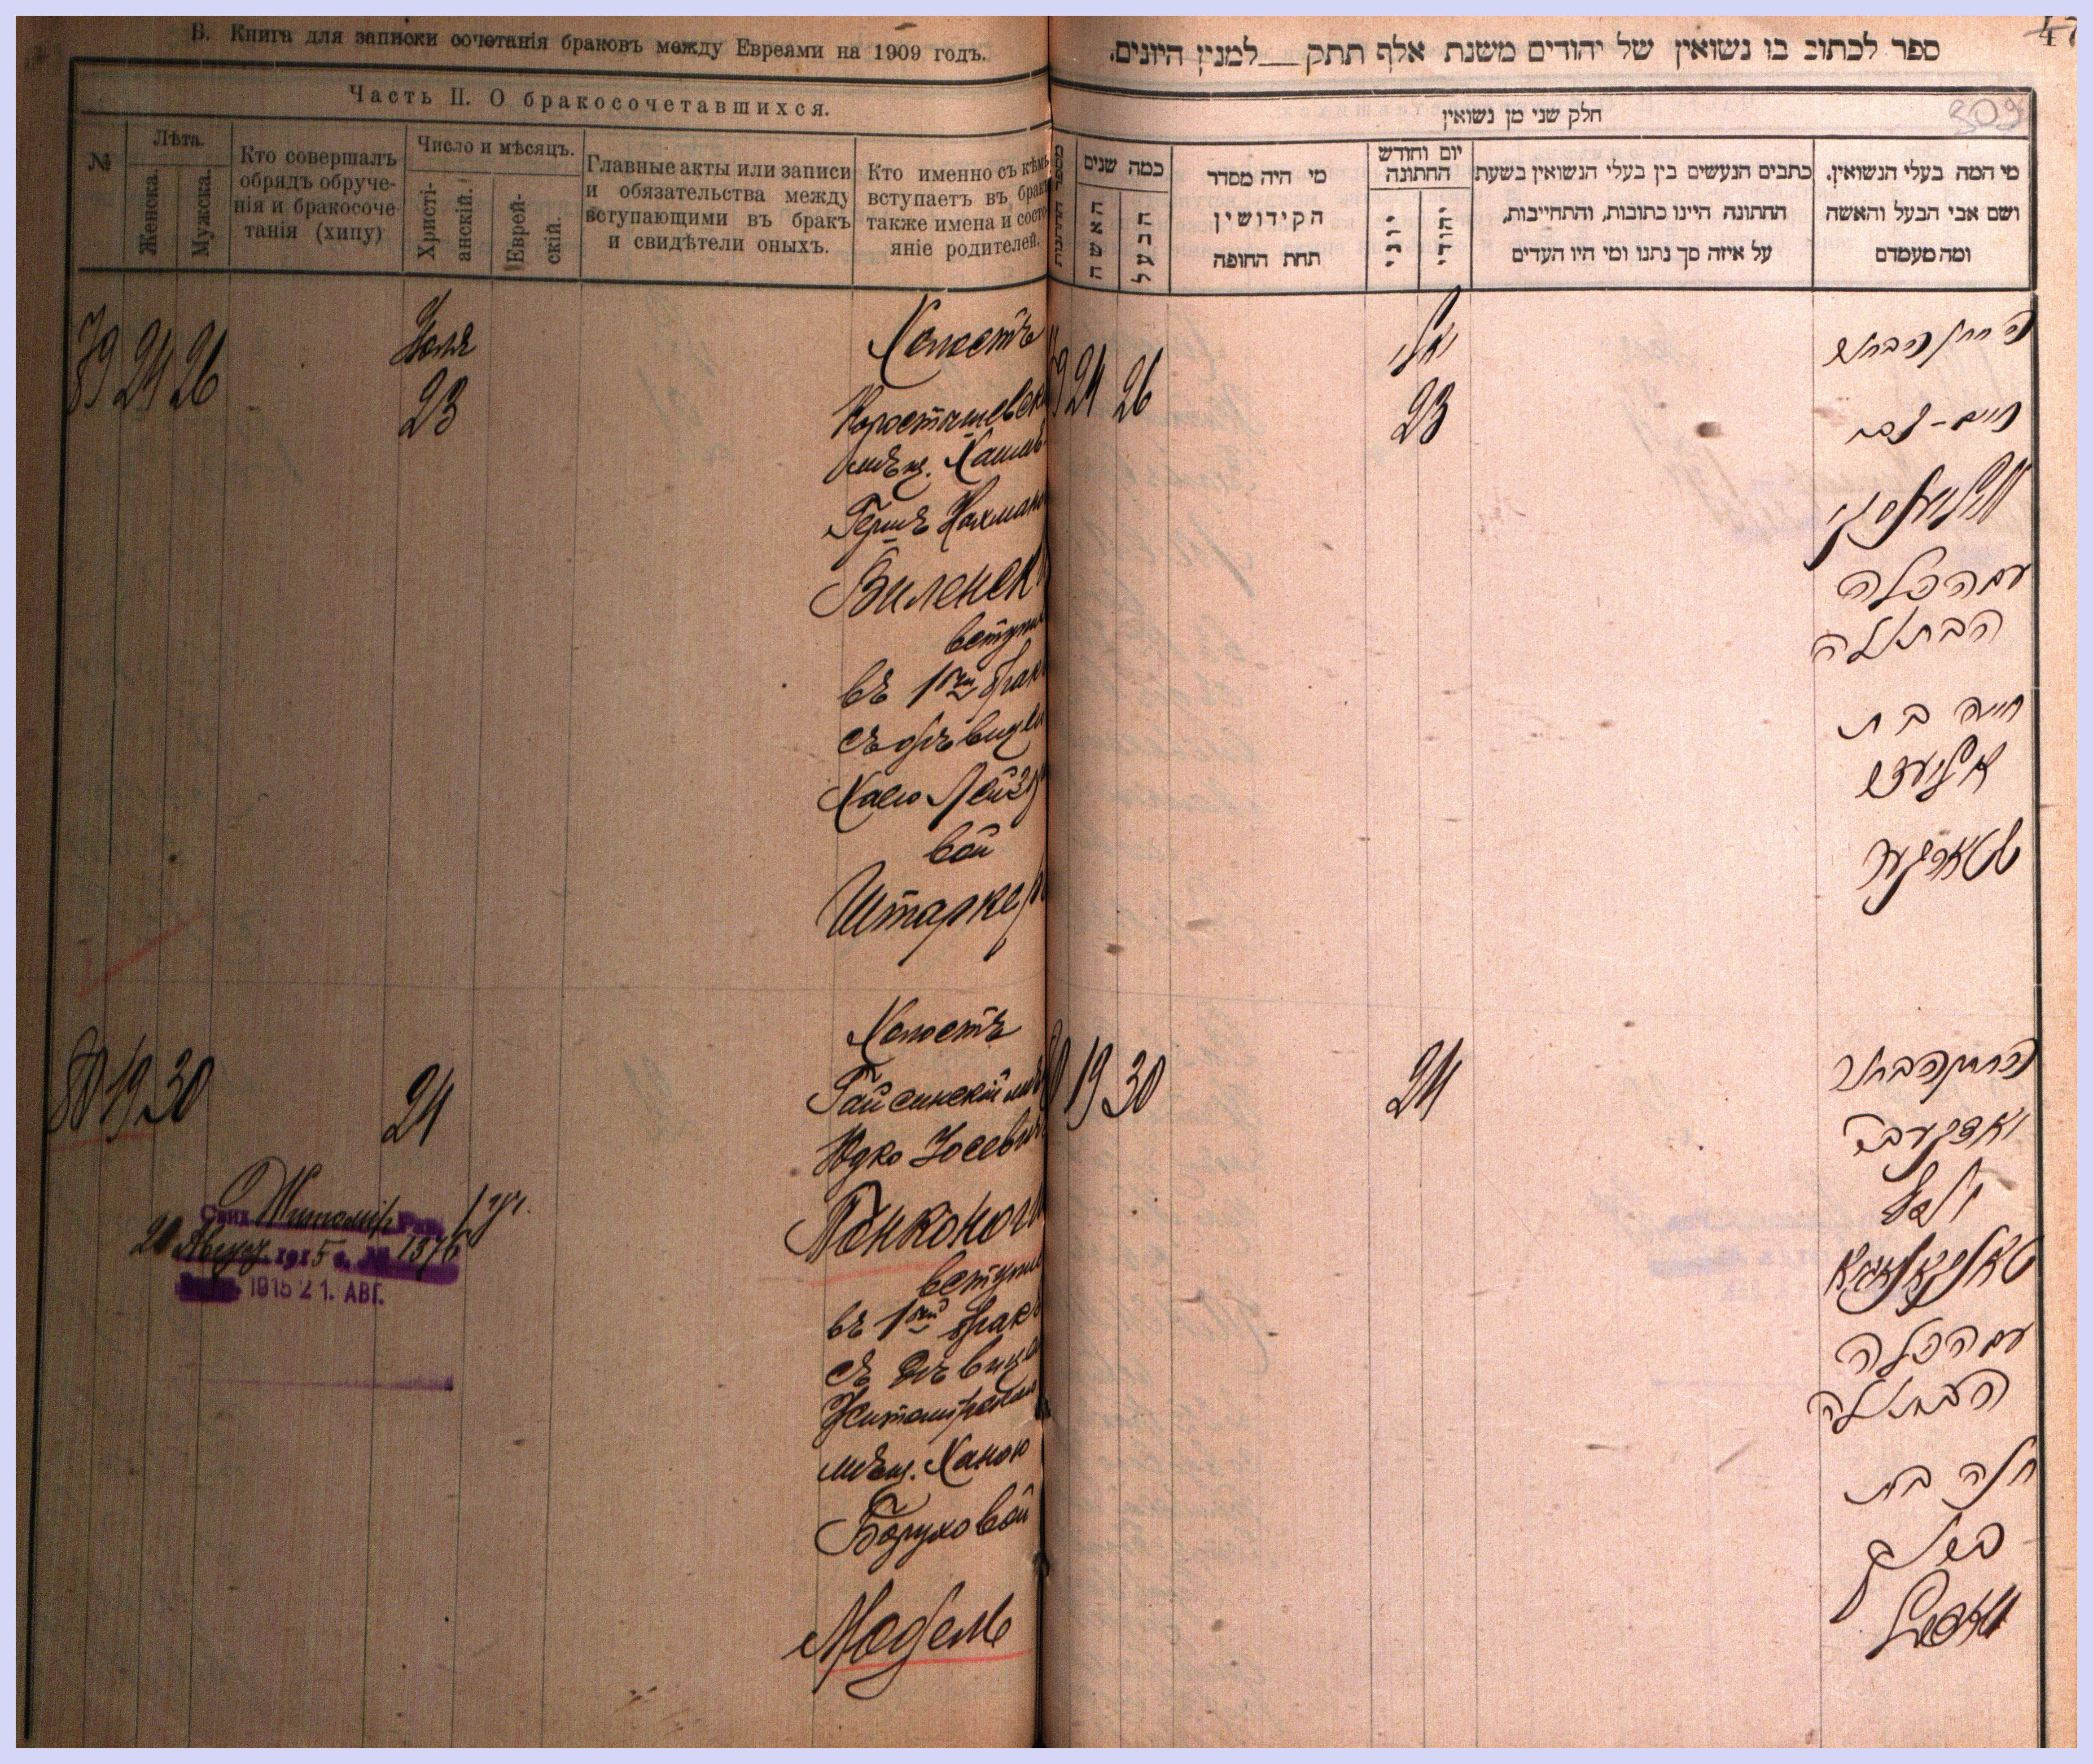 В. Книга для записки сочетанія браковъ между Евреями на 1909 годъ.
Часть II. О бракосочетавшихся.
№
Лѣта.
Женска.
Мужска.
Кто совершалъ
обрядъ обруче-
нія и бракосоче
танія (хипу)
Число и мѣсяцъ.
Христі-
анскій.
Еврей-
скій.
Главные акты или записи
и обязательства между
вступающими въ бракъ
и свидѣтели оныхъ.
Кто именно съ кѣмъ
вступаетъ въ бракъ
также имена и состо-
яніе родителей.
79 24 26
Іюля
23
Холостъ
Коросташевск
мѣщ. Хаимъ
Гершъ Нахманов
Виленск
вступи
въ 1ый бракъ
съ дѣвицей
Хаею Лейзе
вой
Штаркер
80 19 30
24
Холостъ
Гайсинскій мѣ
Юдко Іосевич
Тонконоги
вступи
въ 1ый бракъ
съ дѣвицей
Житомирской
мѣщ. Ханою
Боруховой
Модель
Житомир. 1 уч.
21 Август 1915 г. № 1376
1915 21. АВГ.
47
ספר לכתוב בו נשואין של יהודים משנת אלף תתק __ למנין היונים.
309
חלק שני מן נשואין
מספר החתונות
כמה שנים
האשה
הבעל
מי היה מסדר
הקידושין
תחת החופה
יום וחודש
החתונה
יוני
יהודי
כתבים הנעשים בין בעלי הנשואין בשעת
החתונה היינו כתובות, והתחייבות,
על איזה סך נתנו ומי היו העדים
מי המה בעלי הנשואין.
ושם אבי הבעל והאשה
ומה מעמדם
79 24 26
יולי
23
ה חתן הבחור
חיים - צבי
ווילענסקי
עם הכלה
הבתולה
חיה בת
אליעזר
שטארקער
80 19 30
24
החתן הבחור
יודקע בר
יוסף
טאנקאנאגא
עם הכלה
הבתולה
חנה בת
ברוך
מאדעל